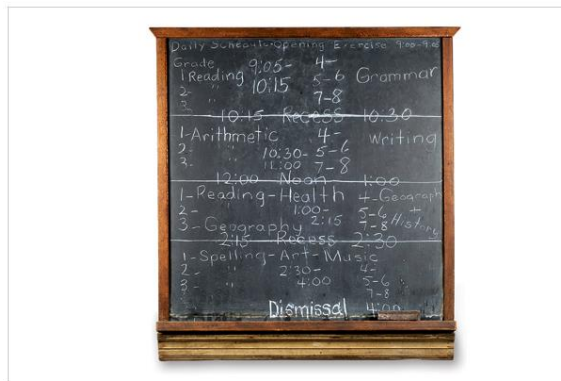 Daily Schedule-Opening Exercise 9:00-9:05
Grade 9:05- 4-
1 Reading 10:15 5-6 Grammar
2- " 7-8
3- "
10:15 Recess 10:30
1-Arithmetic 4- Writing
2- " 10:30- 5-6
3- " 12:00 7-8
12:00 Noon 1:00
1-Reading-Health 4-Geography
2- " 1:00- 5-6 +
3-Geography 2:15 7-8 History
2:15 Recess 2:30
1-Spelling-Art-Music
2- " 2:30- 4-
3 " 4:00 5-6
7-8
Dismissal 4:00